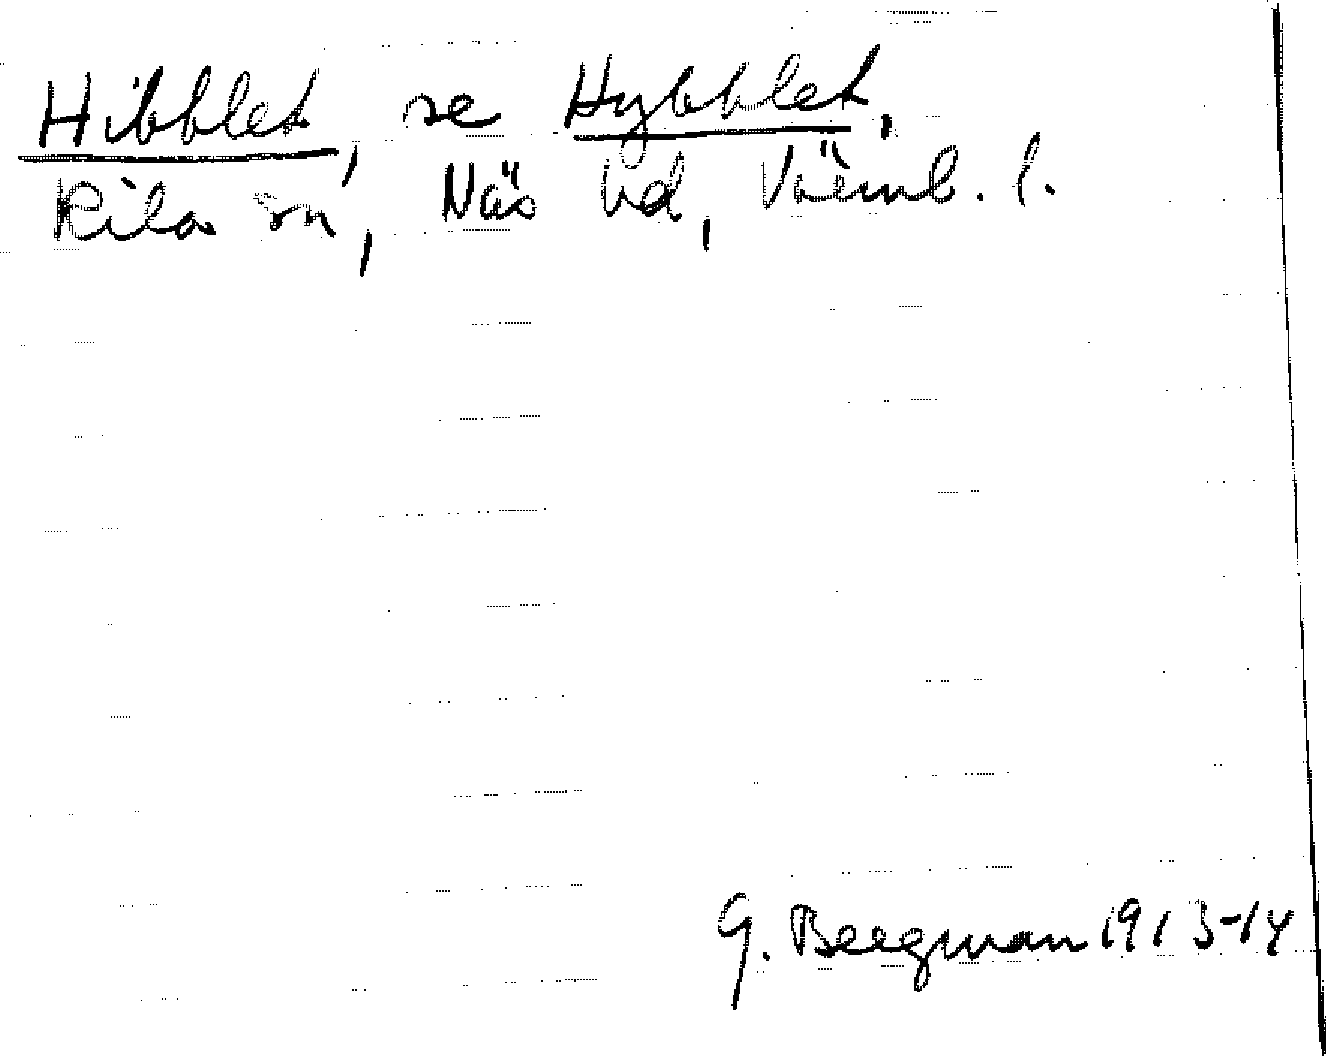 Hibblet, se Hybblet,
Kila sn, Näs hd, Värml. l.
G. Bergman 1913-14